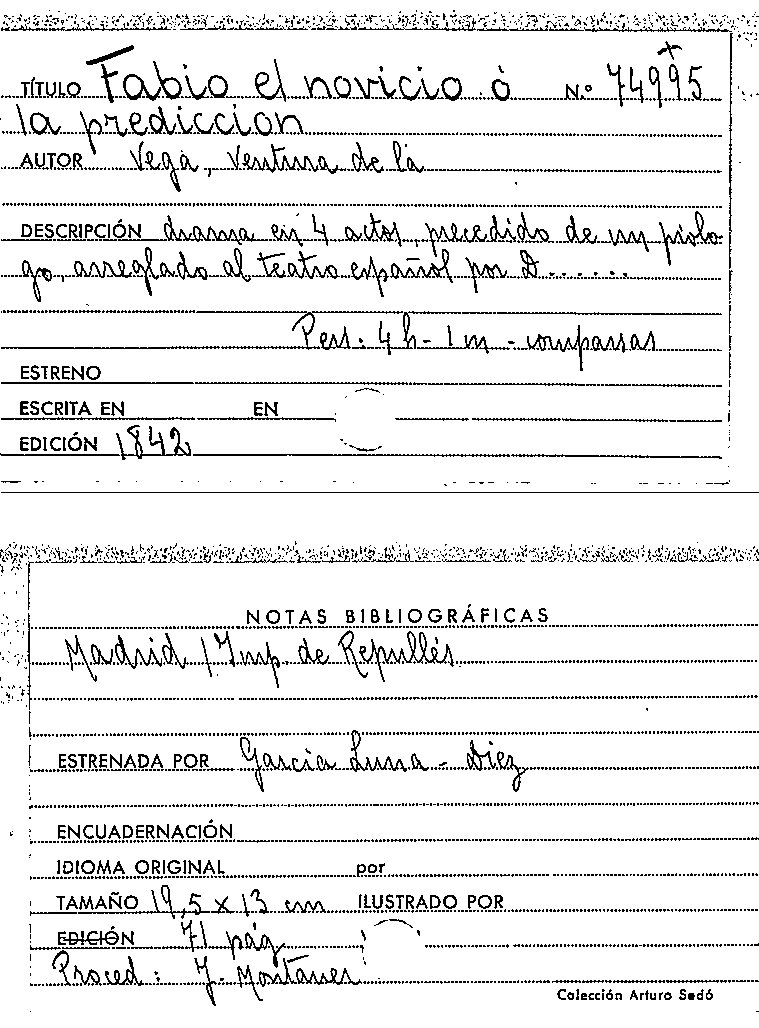 TÍTULO Fabio el novicio ó N.º 74995
la prediccion
AUTOR Vega, Ventura de la
DESCRIPCIÓN drama en 4 actos, precedido de un prólo-
go, arreglado al teatro español por D.......
Pers. 4 h - 1 m - comparsas
ESTRENO
ESCRITA EN EN
EDICIÓN 1842
NOTAS BIBLIOGRÁFICAS
Madrid / Imp. de Repullés
ESTRENADA POR García Luna - Diez
ENCUADERNACIÓN
IDIOMA ORIGINAL por
TAMAÑO 19,5 x 13 cm ILUSTRADO POR
EDICIÓN 71 pág
Proced: J. Montaner
Colección Arturo Sedó